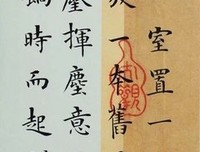 室置一
一本舊
揮塵意
時而起